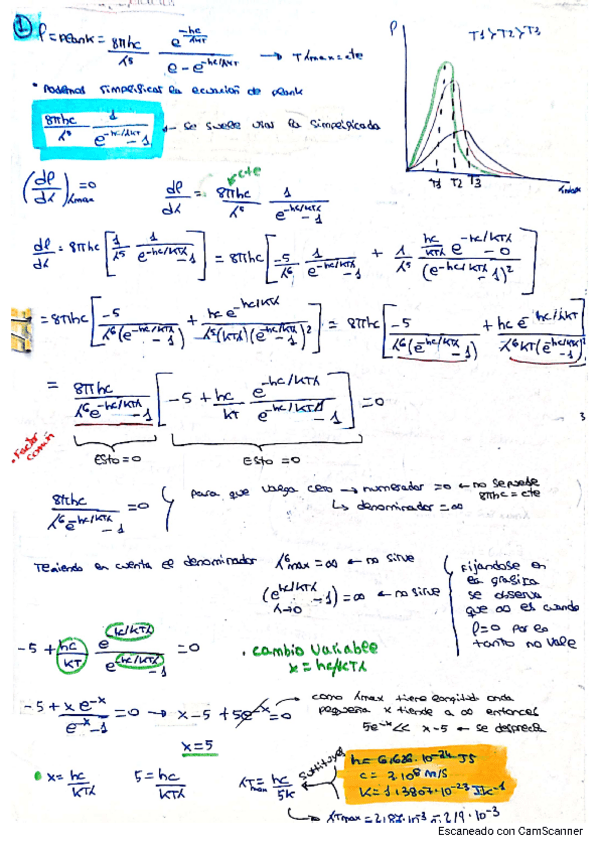 ① ρ = Plank = 8πhc/λ⁵ e^(-hc/λKT)/(e - e^(-hc/λKT)) → Tλmax = cte
P
T1 > T2 > T3
• Podemos simplificar la ecuación de plank
8πhc/λ⁵ 1/(e^(-hc/λKT) - 1) - se suele usar la simplificada
T1 T2 T3
λmax
(dρ/dλ)λmax = 0 dρ/dλ = 8πhc/λ⁵ 1/(e^(-hc/KTλ) - 1)
cte
dρ/dλ = 8πhc [1/λ⁵ 1/(e^(-hc/KTλ) - 1)] = 8πhc [-5/λ⁶ 1/(e^(-hc/KTλ) - 1) + 1/λ⁵ (hc/KTλ e^(-hc/KTλ) - 0)/(e^(-hc/KTλ) - 1)²]
= 8πhc [-5/(λ⁶(e^(-hc/KTλ) - 1)) + hc e^(-hc/λKT)/(λ⁵(KTλ)(e^(-hc/KTλ) - 1)²)] = 8πhc [-5/(λ⁶(e^(-hc/KTλ) - 1)) + hc e^(-hc/λKT)/(λ⁶KT(e^(-hc/KTλ) - 1)²)]
= 8πhc/(λ⁶e^(-hc/KTλ) - 1) [-5 + hc/KT e^(-hc/KTλ)/(e^(-hc/KTλ) - 1)] = 0
3
• Factor común
Esto = 0 Esto = 0
8πhc/(λ⁶e^(-hc/KTλ) - 1) = 0
para que valga cero → numerador = 0 ← no se puede
8πhc = cte
↳ denominador = ∞
Teniendo en cuenta el denominador λ⁶max = ∞ ← no sirve
(e^(hc/KTλ) - 1) = ∞ ← no sirve
λ→0
Fijandose en
la grafica
se observa
que ∞ es cuando
ρ=0 por lo
tanto no vale
-5 + hc/KT e^(hc/KTλ)/(e^(hc/KTλ) - 1) = 0
• cambio variable
x = hc/KTλ
(-5 + x e^(-x))/(e^(-x) - 1) = 0 → x - 5 + 5e^(-x) = 0
como λmax tiene longitud onda
pequeña x tiende a ∞ entonces
5e^(-x) << x-5 ← se desprecia
x = 5
• x = hc/KTλ 5 = hc/KTλ λTmax = hc/5k
sustituyo
h = 6,626·10⁻²⁴ JS
c = 3·10⁸ m/s
K = 1,3807·10⁻²³ Jk⁻¹
↳ λTmax = 2,87·10⁻³ ≈ 2,9·10⁻³
Escaneado con CamScanner